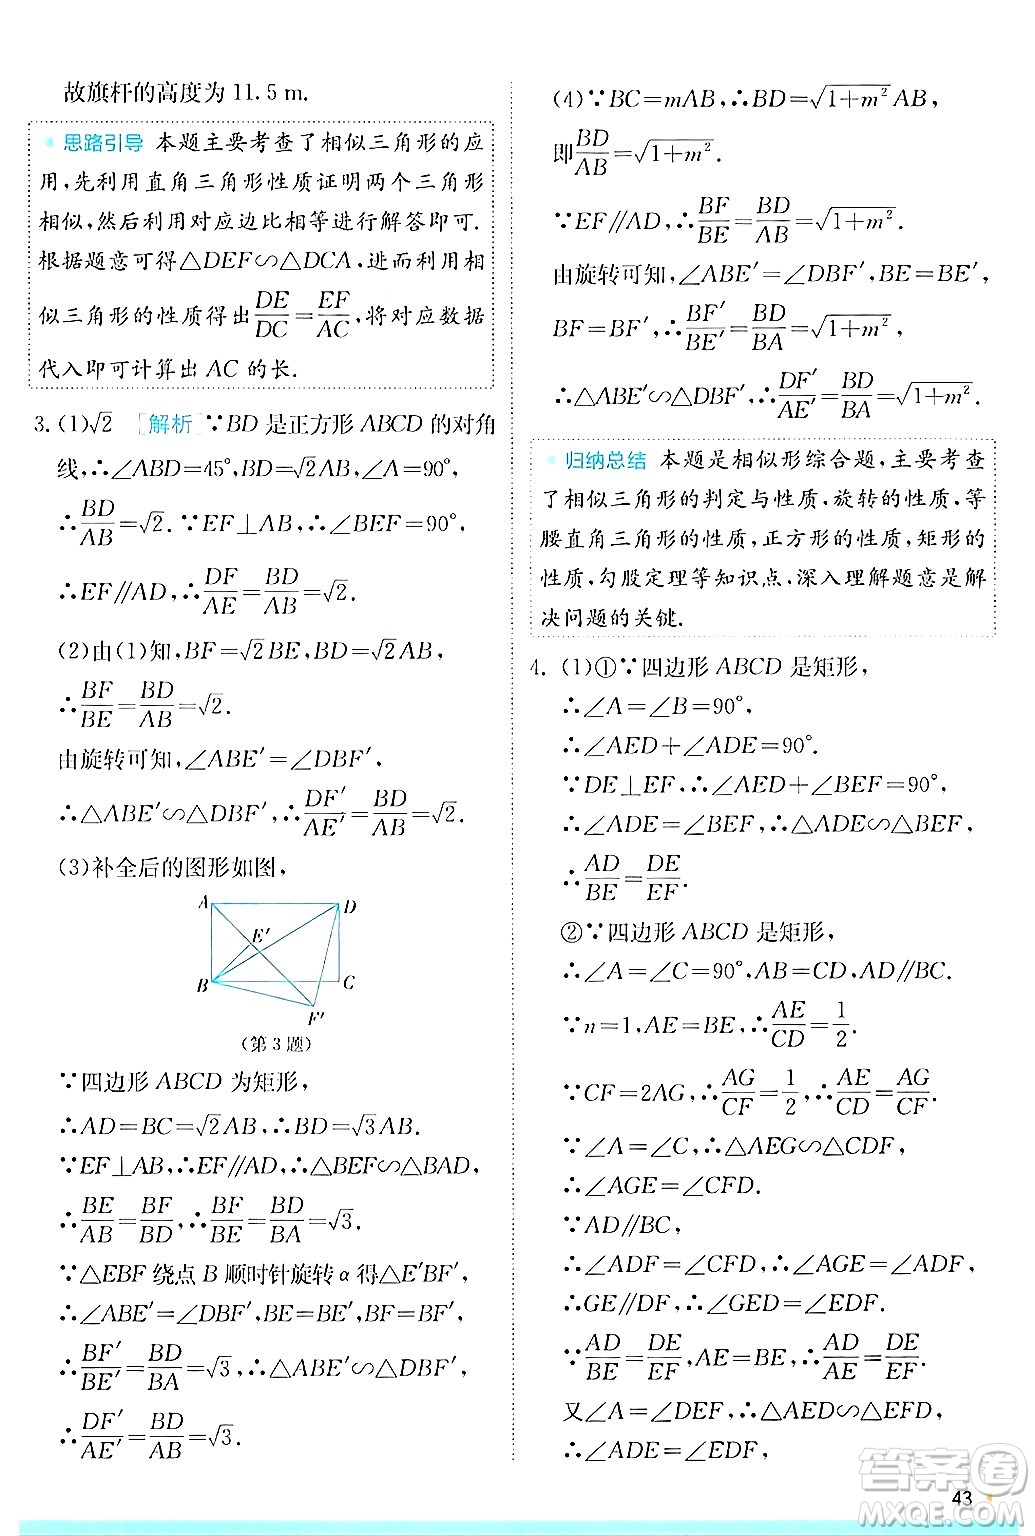 故旗杆的高度为 11.5 m.
思路引导 本题主要考查了相似三角形的应
用,先利用直角三角形性质证明两个三角形
相似,然后利用对应边比相等进行解答即可.
根据题意可得△DEF∽△DCA,进而利用相
似三角形的性质得出DE/DC=EF/AC,将对应数据
代入即可计算出 AC 的长.
3. (1)√2 [解析]∵BD 是正方形 ABCD 的对角
线,∴∠ABD=45°,BD=√2AB,∠A=90°,
∴BD/AB=√2. ∵EF⊥AB,∴∠BEF=90°,
∴EF∥AD,∴DF/AE=BD/AB=√2.
(2)由(1)知,BF=√2BE,BD=√2AB,
∴BF/BE=BD/AB=√2.
由旋转可知,∠ABE′=∠DBF′,
∴△ABE′∽△DBF′,∴DF′/AE′=BD/AB=√2.
(3)补全后的图形如图,
A
D
E′
B
C
F′
(第 3 题)
∵四边形 ABCD 为矩形,
∴AD=BC=√2AB,∴BD=√3AB.
∵EF⊥AB,∴EF∥AD,∴△BEF∽△BAD,
∴BE/AB=BF/BD,∴BF/BE=BD/BA=√3.
∵△EBF 绕点 B 顺时针旋转 α 得△E′BF′,
∴∠ABE′=∠DBF′,BE=BE′,BF=BF′,
∴BF′/BE′=BD/BA=√3,∴△ABE′∽△DBF′,
∴DF′/AE′=BD/BA=√3.
(4)∵BC=mAB,∴BD=√(1+m²)AB,
即BD/AB=√(1+m²).
∵EF∥AD,∴BF/BE=BD/BA=√(1+m²).
由旋转可知,∠ABE′=∠DBF′,BE=BE′,
BF=BF′,∴BF′/BE′=BD/BA=√(1+m²),
∴△ABE′∽△DBF′,∴DF′/AE′=BD/BA=√(1+m²).
归纳总结 本题是相似形综合题,主要考查
了相似三角形的判定与性质,旋转的性质,等
腰直角三角形的性质,正方形的性质,矩形的
性质,勾股定理等知识点,深入理解题意是解
决问题的关键.
4. (1)①∵四边形 ABCD 是矩形,
∴∠A=∠B=90°,
∴∠AED+∠ADE=90°.
∵DE⊥EF,∴∠AED+∠BEF=90°,
∴∠ADE=∠BEF,∴△ADE∽△BEF,
∴AD/BE=DE/EF.
②∵四边形 ABCD 是矩形,
∴∠A=∠C=90°,AB=CD,AD∥BC.
∵n=1,AE=BE,∴AE/CD=1/2.
∵CF=2AG,∴AG/CF=1/2,∴AE/CD=AG/CF.
∵∠A=∠C,∴△AEG∽△CDF,
∴∠AGE=∠CFD.
∵AD∥BC,
∴∠ADF=∠CFD,∴∠AGE=∠ADF,
∴GE∥DF,∴∠GED=∠EDF.
∵AD/BE=DE/EF,AE=BE,∴AD/AE=DE/EF.
又∠A=∠DEF,∴△AED∽△EFD,
∴∠ADE=∠EDF,
43
答案圈
MXQE.COM